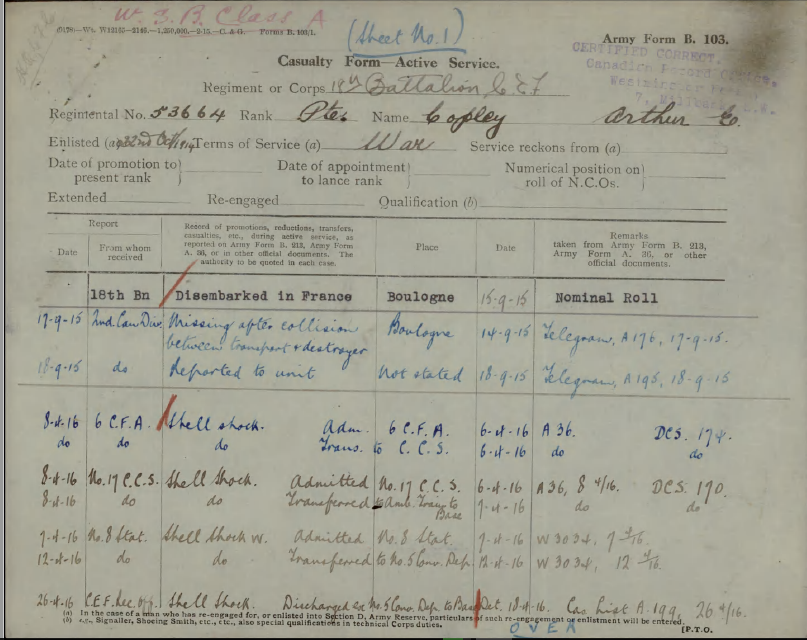 W.S.B. Class A
(6178)-Wt. W12165-2146.-1,250,000.-2-15.-C.&G. Forms B.103/1.
(Sheet No. 1)
Army Form B. 103.
CERTIFIED CORRECT.
Casualty Form—Active Service.
Canadian Record Office,
Regiment or Corps 18th Battalion C E F
Regimental No. 53664 Rank Pte. Name Copley Arthur E.
Enlisted (a) 22nd Oct/1914 Terms of Service (a) War Service reckons from (a)
Date of promotion to present rank } Date of appointment to lance rank } Numerical position on roll of N.C.Os. }
Extended Re-engaged Qualification (b)
Report
Date From whom received
Record of promotions, reductions, transfers, casualties, etc., during active service, as reported on Army Form B. 213, Army Form A. 36, or in other official documents. The authority to be quoted in each case.
Place
Date
Remarks taken from Army Form B. 213, Army Form A. 36, or other official documents.
18th Bn Disembarked in France Boulogne 15-9-15 Nominal Roll
17-9-15 2nd Can Div. Missing after collision between transport & destroyer Boulogne 14-9-15 Telegram, A176, 17-9-15.
18-9-15 do Reported to unit Not stated 18-9-15 Telegram, A195, 18-9-15
8-4-16 6 C.F.A. Shell shock. Adm. 6 C.F.A. 6-4-16 A 36. DCS. 174.
do do do Trans. to C.C.S. 6-4-16 do do
8-4-16 No.17 C.C.S. Shell Shock. Admitted No.17 C.C.S. 6-4-16 A36, 8 4/16. DCS. 170.
8-4-16 do do Transferred to Amb. Train to Base 7-4-16 do do
7-4-16 No. 8 Stat. Shell Shock W. Admitted No. 8 Stat. 7-4-16 W 3034, 7 4/16.
12-4-16 do do Transferred to No. 5 Conv. Dep. 12-4-16 W 3034, 12 4/16.
26-4-16 C.E.F. Rec. Off. Shell Shock. Discharged ex No. 5 Conv. Dep. to Base Det. 18-4-16. Cas. List A.199, 26 4/16.
(a) In the case of a man who has re-engaged for, or enlisted into Section D, Army Reserve, particulars of such re-engagement or enlistment will be entered.
(b) e.g., Signaller, Shoeing Smith, etc., etc., also special qualifications in technical Corps duties.
OVER
[P.T.O.